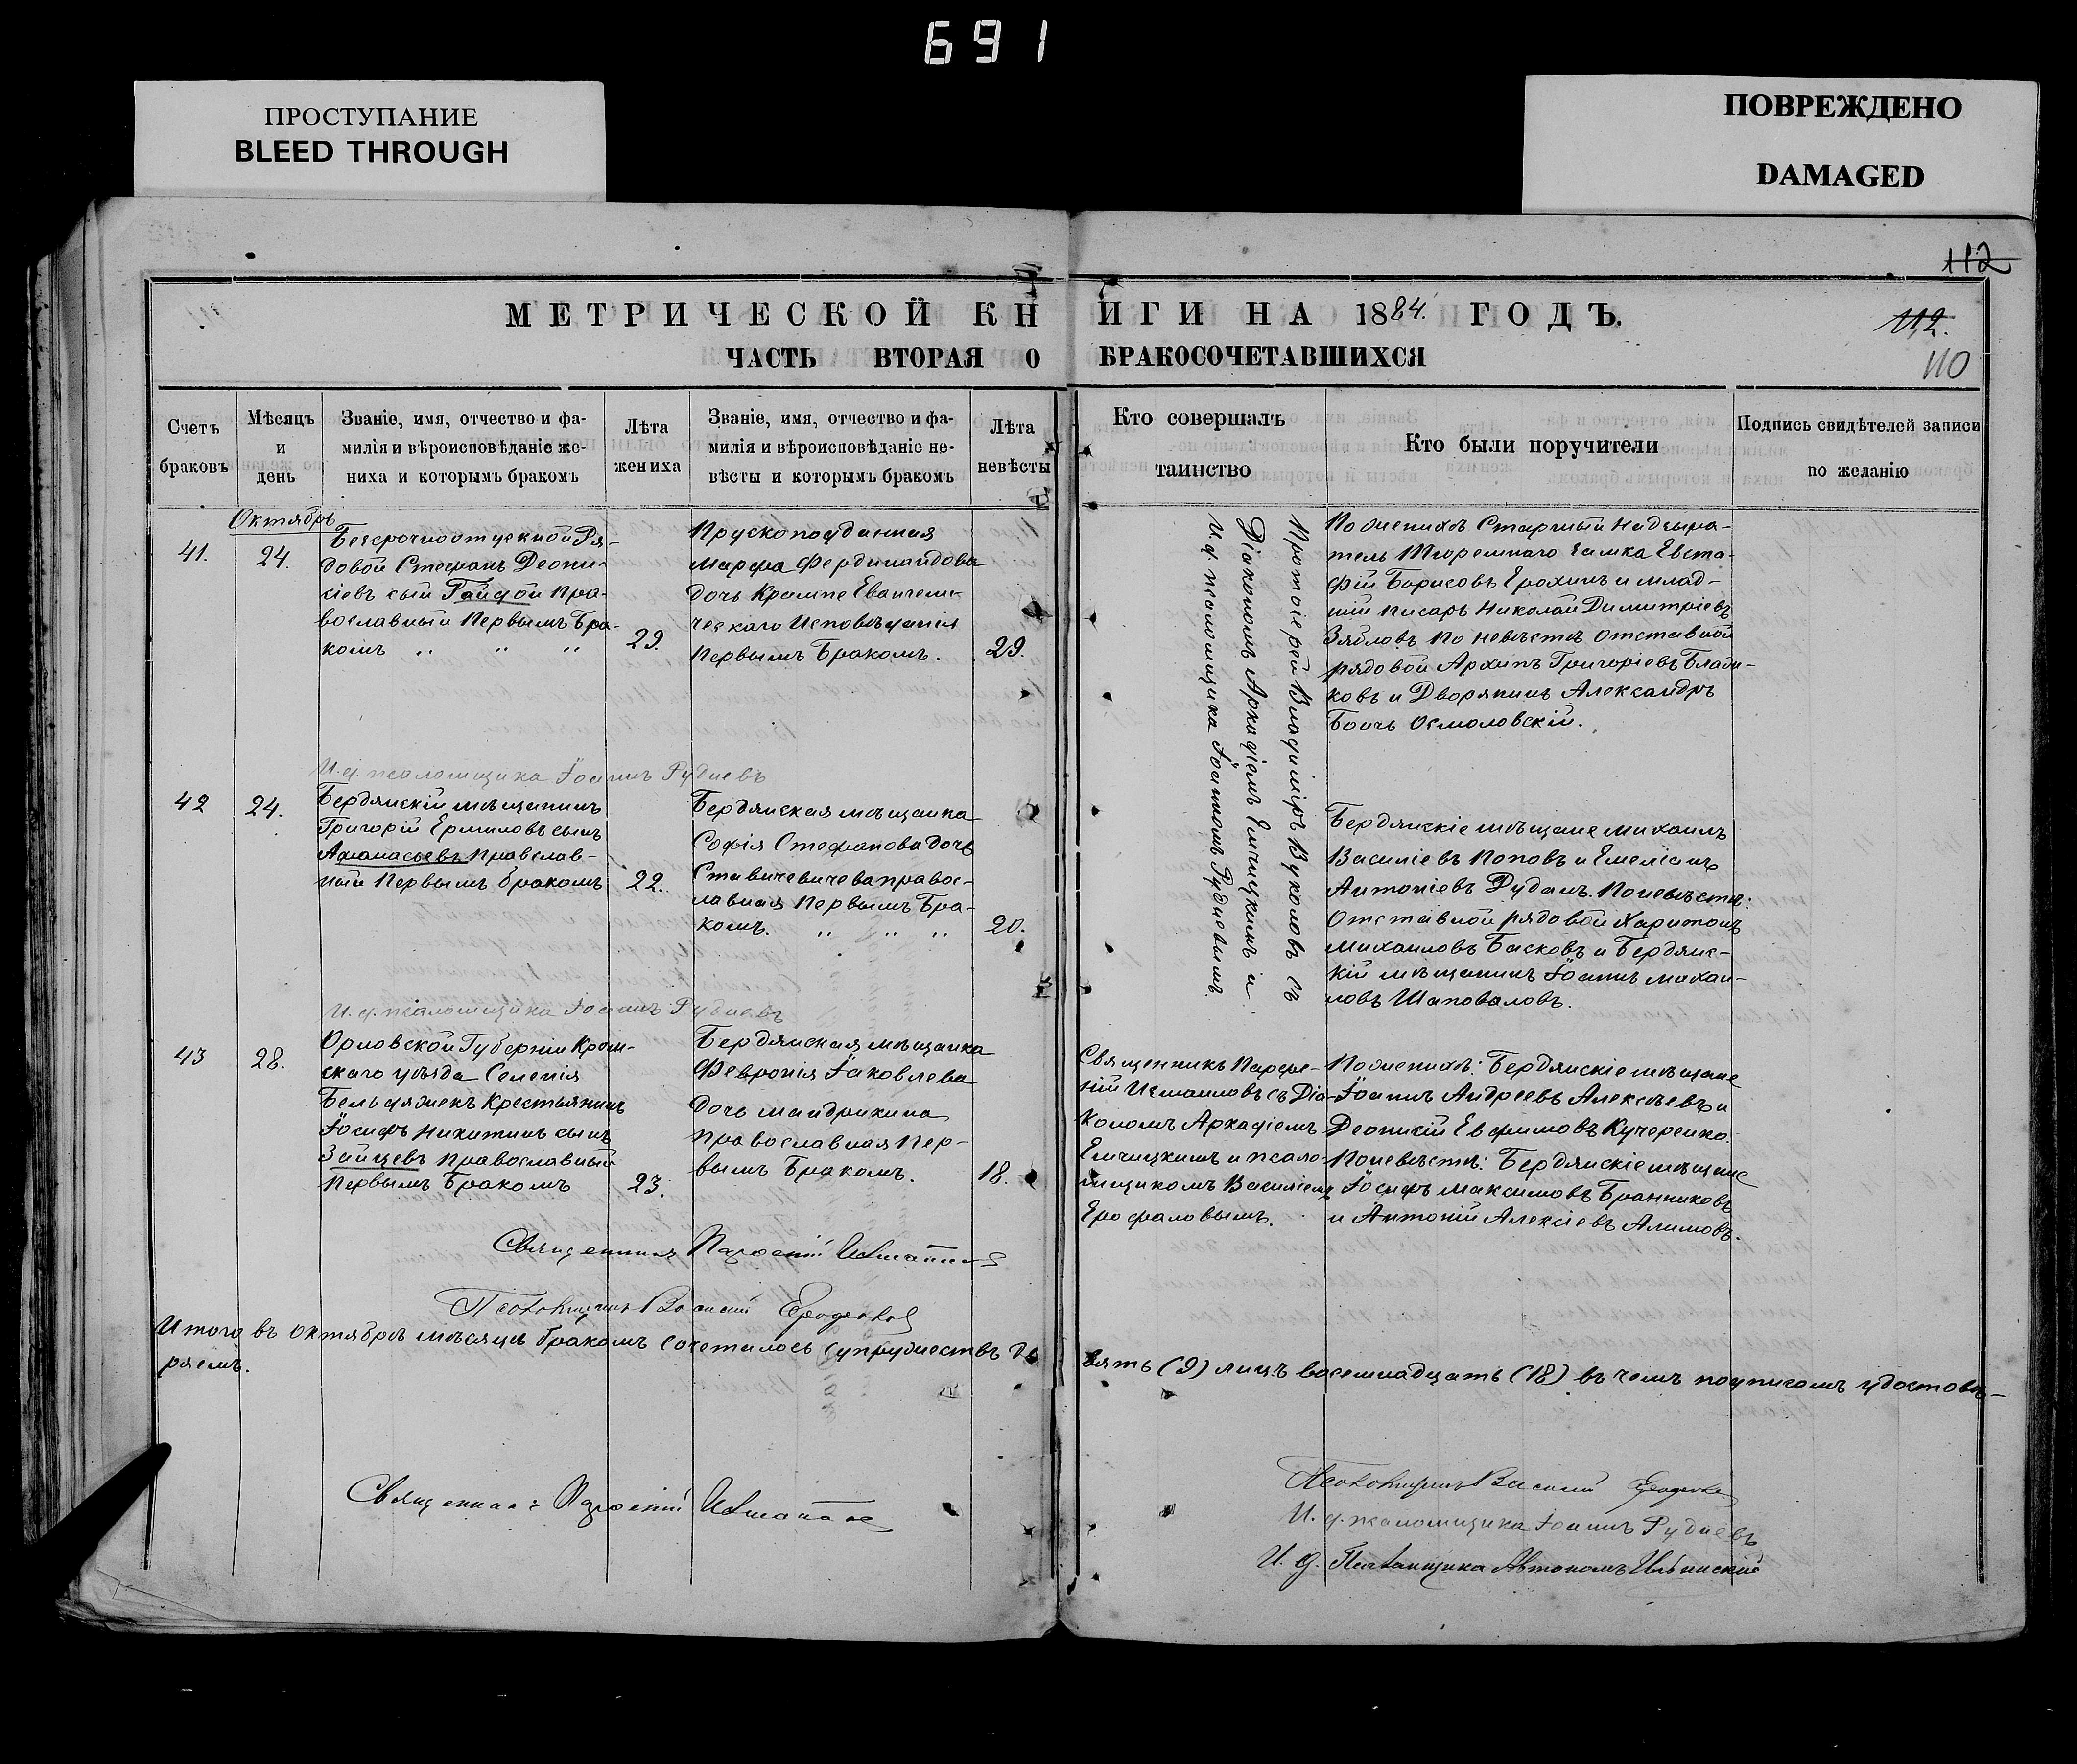 691
ПРОСТУПАНИЕ
BLEED THROUGH
ПОВРЕЖДЕНО
DAMAGED
112
МЕТРИЧЕСКОЙ КНИГИ НА 1884. ГОДЪ.
112.
110
ЧАСТЬ ВТОРАЯ О БРАКОСОЧЕТАВШИХСЯ
Счетъ браковъ
Мѣсяцъ и день
Званіе, имя, отчество и фа-
милія и вѣроисповѣданіе же-
ниха и которымъ бракомъ
Лѣта жениха
Званіе, имя, отчество и фа-
милія и вѣроисповѣданіе не-
вѣсты и которымъ бракомъ
Лѣта невѣсты
Кто совершалъ
таинство
Кто были поручители
Подпись свидѣтелей записи
по желанію
Октябрь
41.
24.
Безсрочноотпускной Ря-
довой Стефанъ Деони-
сіевъ сын Гайдой пра-
вославный Первымъ Бра-
комъ
29.
Прускоподданная
Марфа Фердинандова
дочь Крампе Евангели-
ческаго Исповѣданія
Первымъ Бракомъ.
29.
Протоіерей Владиміръ Вуколовъ съ
Діакономъ Аркадіемъ Емчицкимъ и
И. д. псаломщика Іоанномъ Рудневымъ.
По женихѣ Старшый надзыра-
тель Тюремнаго замка Евста-
фій Борисовъ Ерохинъ и млад-
шій писарь Николай Димитріевъ
Зябловъ по невѣстѣ отставной
рядовой Архипъ Григоріевъ
ковъ и Дворянинъ Александръ
Осмоловскій.
И. д. псаломщика Іоаннъ Рудневъ
42
24.
Бердянскій мѣщанинъ
Григорій Ермиловъ сынъ
Афанасьевъ Православ-
ный Первымъ бракомъ
22.
Бердянская мѣщанка
Софія Стефанова дочь
Ставичевичева правос-
лавная Первымъ Бра-
комъ.
20.
Бердянскіе мѣщане Михаилъ
Василіевъ Поповъ и Емеліанъ
Антоніевъ Рудань. По невѣстѣ:
Отставной рядовой Харитонъ
Михаиловъ Басковъ и Бердянс-
кій мѣщанинъ Іоаннъ Михаи-
ловъ Шаповаловъ.
И. д. псаломщика Іоаннъ Рудневъ
43
28.
Орловской Губерніи Кром-
скаго уѣзда Селенія
Бельдяжекъ Крестьянинъ
Іосифъ Никитинъ сынъ
Зайцевъ православный
Первымъ Бракомъ
23.
Бердянская мѣщанка
Февронія Іаковлева
дочь Мандрикина
православная Пер-
вымъ Бракомъ.
18.
Священникъ Парфе-
ній Исмаиловъ съ Діа-
кономъ Аркадіемъ
Емчицкимъ и псало-
мщикомъ Василіемъ
Ерофаловымъ.
По женихѣ: Бердянскіе мѣщане
Іоаннъ Андреевъ Алексѣевъ и
Деонисій Евфимовъ Кучеренко.
По невѣстѣ: Бердянскіе мѣщане
Іосифъ Максимовъ Бранниковъ
и Антоній Алексіевъ Алимовъ.
Священникъ Парфеній
Псаломщикъ Василій
Итого въ октябрѣ мѣсяцѣ бракомъ сочеталось супружествъ де-
вять (9) лицъ восемнадцать (18) въ чемъ подписомъ удостовѣ-
ряемъ.
Священникъ Парфеній
Псаломщикъ Василій
И. д. псаломщика Іоаннъ Рудневъ
И. д. Псаломщика Автономъ Ильинскій